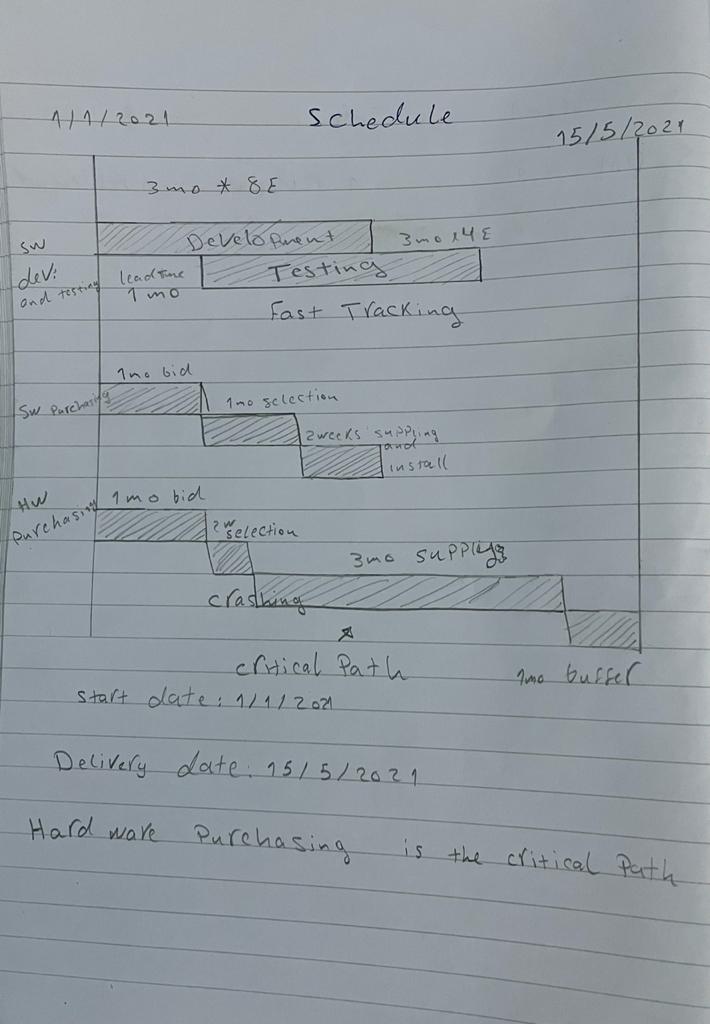 1/1/2021 Schedule 15/5/2021
3mo * 8E
SW dev: and testing
Development 3mo x4E
leadtime 1 mo
Testing
Fast Tracking
1mo bid
SW Purchasing
1mo selection
2weeks suppling and install
HW Purchasing
1mo bid
2w selection
3mo suppling
crashing
critical Path
1mo buffer
start date: 1/1/2021
Delivery date: 15/5/2021
Hard ware Purchasing is the critical Path